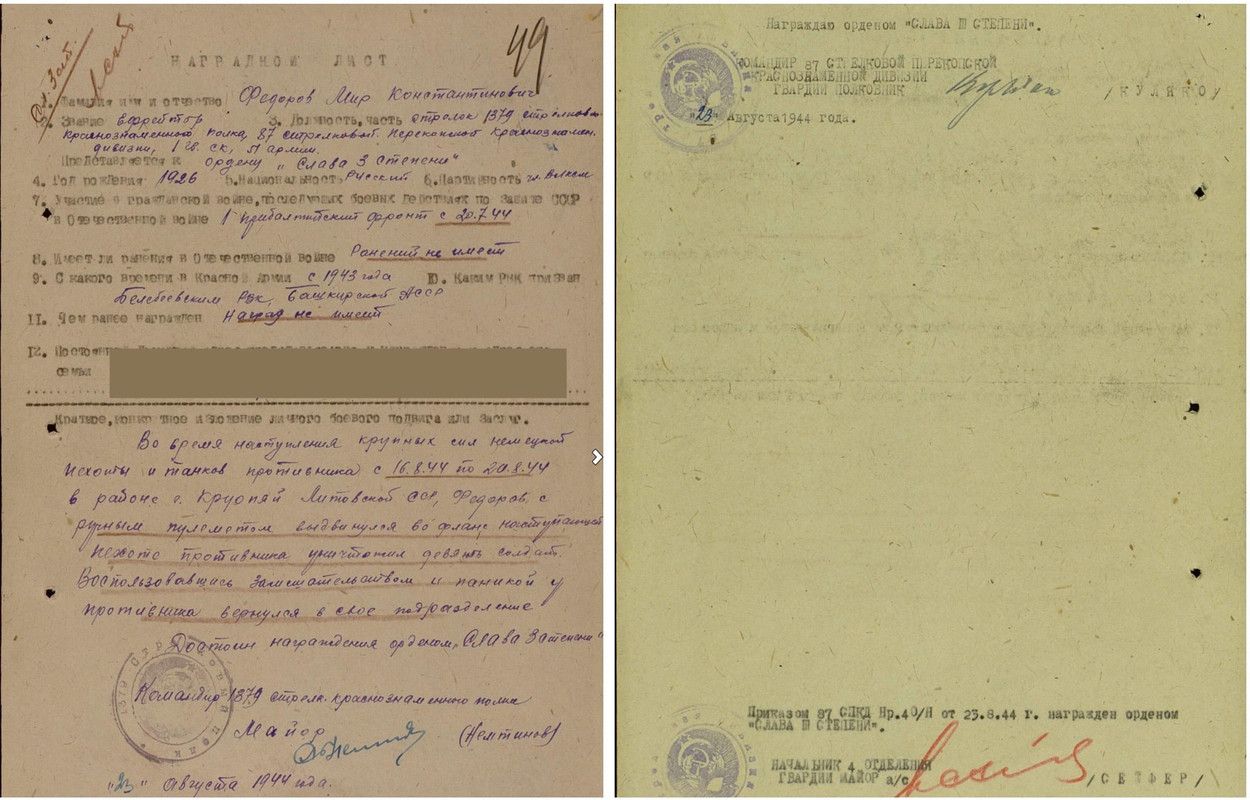 49
НАГРАДНОЙ ЛИСТ
Фамилия имя и отчество Федоров Мир Константинович
2. Звание Ефрейтор 3. Должность, часть стрелок 1379 стрелкового
Краснознаменного полка, 87 стрелковой Перекопской Краснознамен.
дивизии, 1 гв. ск, 51 армии.
Представляется к Ордену „Слава 3 степени“
4. Год рождения 1926 5. Национальность Русский 6. Партийность чл. Влксм
7. Участие в гражданской войне, последующих боевых действиях по защите СССР
в Отечественной войне 1 Прибалтийский фронт с 20.7.44
8. Имеет ли ранения в Отечественной войне Ранений не имеет
9. С какого времени в Красной Армии с 1943 года Ю. Каким РВК призван
Белебеевским Рвк, Башкирской АССР
11. Чем ранее награжден Наград не имеет
12. Постоянный
семьи
Краткое, конкретное изложение личного боевого подвига или заслуг.
Во время наступления крупных сил немецкой
пехоты и танков противника с 16.8.44 по 20.8.44
в районе г. Круопяй Литовской ССР, Федоров с
ручным пулеметом выдвинулся во фланг наступающей
пехоте противника уничтожил девять солдат.
Воспользовавшись замешательством и паникой у
противника вернулся в свое подразделение
Достоин награждения орденом „Слава 3 степени“
Командир 1379 стрелк. краснознаменного полка
Майор (Немтинов)
"23" Августа 1944 года.
Награждаю орденом "СЛАВА Ш СТЕПЕНИ".
КОМАНДИР 87 СТРЕЛКОВОЙ ПЕРЕКОПСКОЙ
КРАСНОЗНАМЕННОЙ ДИВИЗИИ
ГВАРДИИ ПОЛКОВНИК /КУЛЯКО/
"23" Августа 1944 года.
Приказом 87 СПКД Нр.40/Н от 23.8.44 г. награжден орденом
"СЛАВА Ш СТЕПЕНИ".
НАЧАЛЬНИК 4 ОТДЕЛЕНИЯ
ГВАРДИИ МАЙОР а/с /СЕЙФЕР/